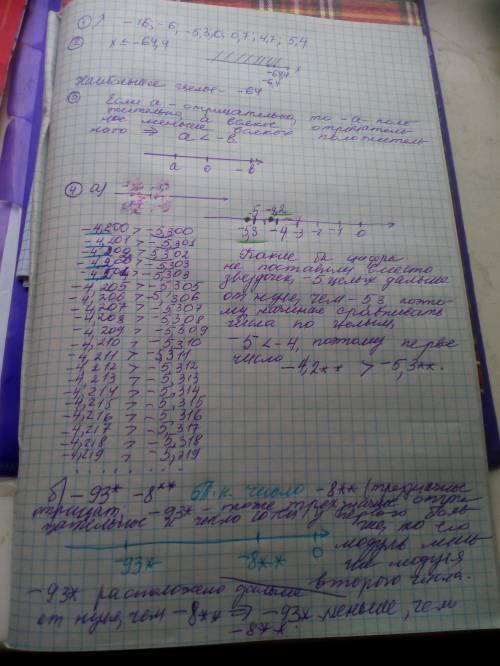 1) -16; -6; -5,3; 0; 0,7; 4,7; 5,4
2 x ≤ -64,4
x
-64,4
-64
Наибольшее целое - -64
3 Если а - отрицательно, то -а - поло-
жительно, а всякое отрицатель-
ное меньше всякого положитель
ного ⇒ a < -b
a 0 -b
4 а)
-5 -4,2
-5,3 -4 -3 -2 -1 0
-4,200 > -5,300
-4,201 > -5,301
-4,202 > -5,302
-4,203 > -5,303
-4,204 > -5,303
-4,205 > -5,305
-4,206 > -5,306
-4,207 > -5,307
-4,208 > -5,308
-4,209 > -5,309
-4,210 > -5,310
-4,211 > -5,311
-4,212 > -5,312
-4,213 > -5,313
-4,214 > -5,314
-4,215 > -5,315
-4,216 > -5,316
-4,217 > -5,317
-4,218 > -5,318
-4,219 > -5,319
Какие бы цифры
не поставили вместо
звездочек, -5 целых дальше
от нуля, чем -5,3 поэто-
му начиная сравнивать
числа по целым,
-5 < -4, поэтому первое
число
-4,2** > -5,3**.
б) -93* -8** б) Т.к. число -8** (трехзначное
отрицат., -93* - тоже трехзначное отри-
цательное и число сотен у него боль
ше, то его
модуль мень
ше модуля
второго числа.
-93* -8** 0
-93* расположено дальше
от нуля, чем -8** ⇒ -93* меньше, чем
-8**.